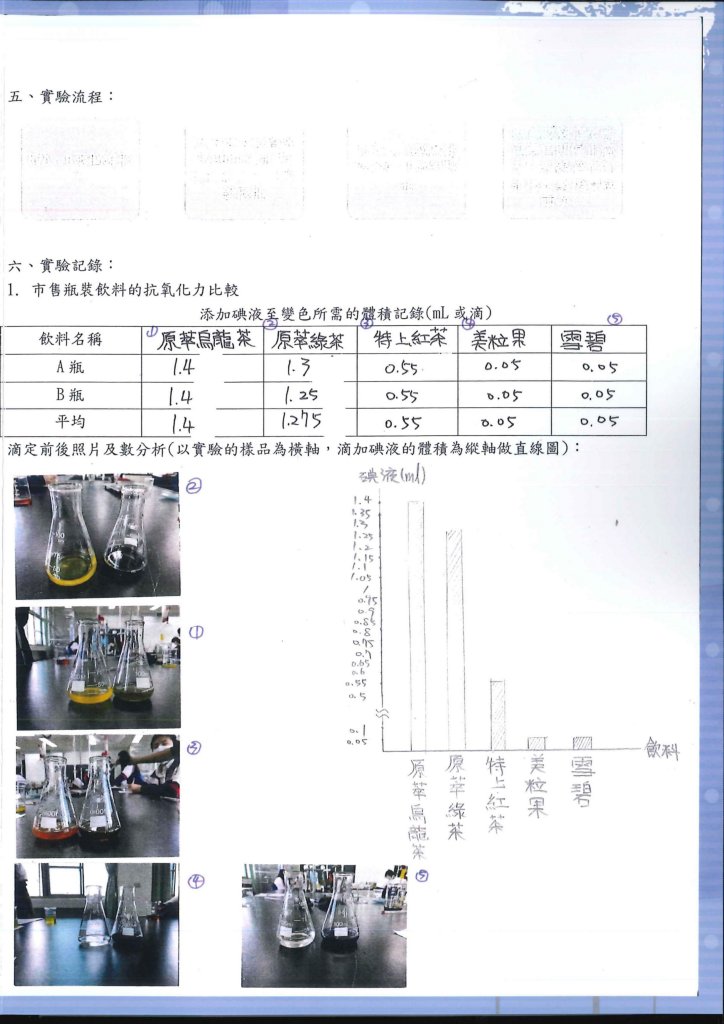 五、實驗流程：
六、實驗記錄：
1. 市售瓶裝飲料的抗氧化力比較
添加碘液至變色所需的體積記錄(mL 或滴)
飲料名稱 ①原萃烏龍茶 ②原萃綠茶 ③特上紅茶 ④美粒果 ⑤雪碧
A 瓶 1.4 1.3 0.55 0.05 0.05
B 瓶 1.4 1.25 0.55 0.05 0.05
平均 1.4 1.275 0.55 0.05 0.05
滴定前後照片及數分析(以實驗的樣品為橫軸，滴加碘液的體積為縱軸做直線圖)：
碘液(ml)
1.4
1.35
1.3
1.25
1.2
1.15
1.1
1.05
1
0.95
0.9
0.85
0.8
0.75
0.7
0.65
0.6
0.55
0.5
0.1
0.05
飲料
原萃烏龍茶
原萃綠茶
特上紅茶
美粒果
雪碧
②
①
③
④
⑤